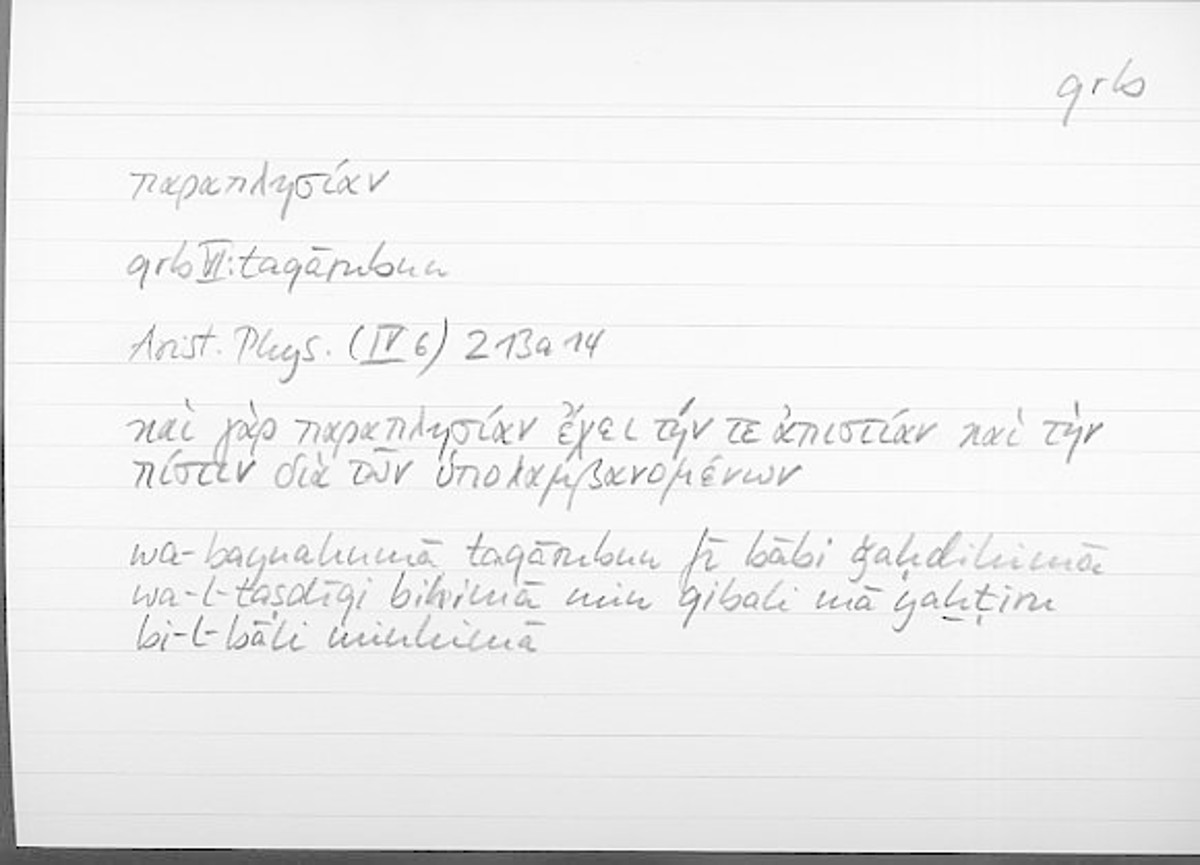 qrb
παραπλησίαν
qrb VI: taqārubun
Arist. Phys. (IV 6) 213a14
καὶ γὰρ παραπλησίαν ἔχει τήν τε ἀπιστίαν καὶ τὴν
πίστιν διὰ τῶν ὑπολαμβανομένων
wa-baynahumā taqārubun fī bābi ǧaḥdihimā
wa-l-taṣdīqi bihimā min qibali mā yaḫṭiru
bi-l-bāli minhimā